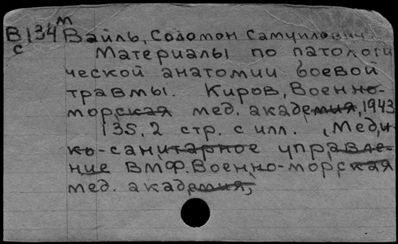 В134 м Вайль, Соломон Самуилович.
с Материалы по патологи
ческой анатомии боевой
травмы. Киров, Военно-
морская мед. академия, 1943
135, 2 стр. с илл. (Медиц
ко-санитарное управле-
ние ВМФ. Военно-морская
мед. академия,